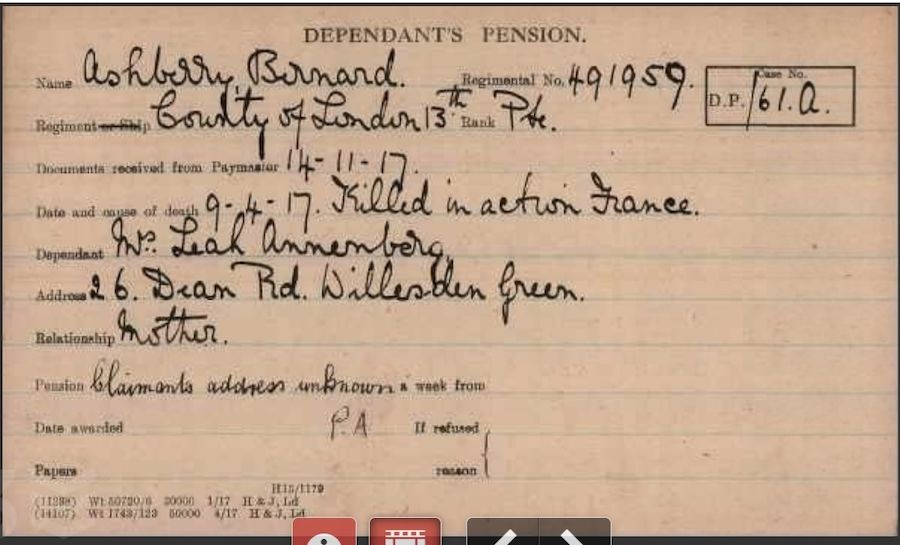 DEPENDANT'S PENSION.
Name Ashberry, Bernard. Regimental No. 491959.
Case No.
D.P. /61.A.
Regiment or Ship County of London 13th Rank Pte.
Documents received from Paymaster 14-11-17.
Date and cause of death 9-4-17. Killed in action France.
Dependant Mrs. Leah Annenberg.
Address 26. Dean Rd. Willesden Green.
Relationship Mother.
Pension Claimants address unknown a week from
Date awarded P.A If refused
Papers reason
H15/1179
(11288) Wt 50720/6 30000 1/17 H & J, Ld
(14107) Wt 1743/123 50000 4/17 H & J, Ld